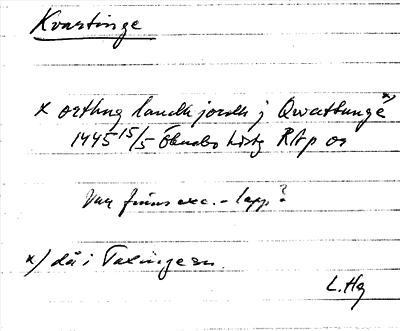 Kvartinge
x ortug landh jordh j Qwattunge x)
1445 15/5 Öknebo hdsg RAp or
Var finns exc. - lapp?
x) då i Taxinge sn.
L. Hg